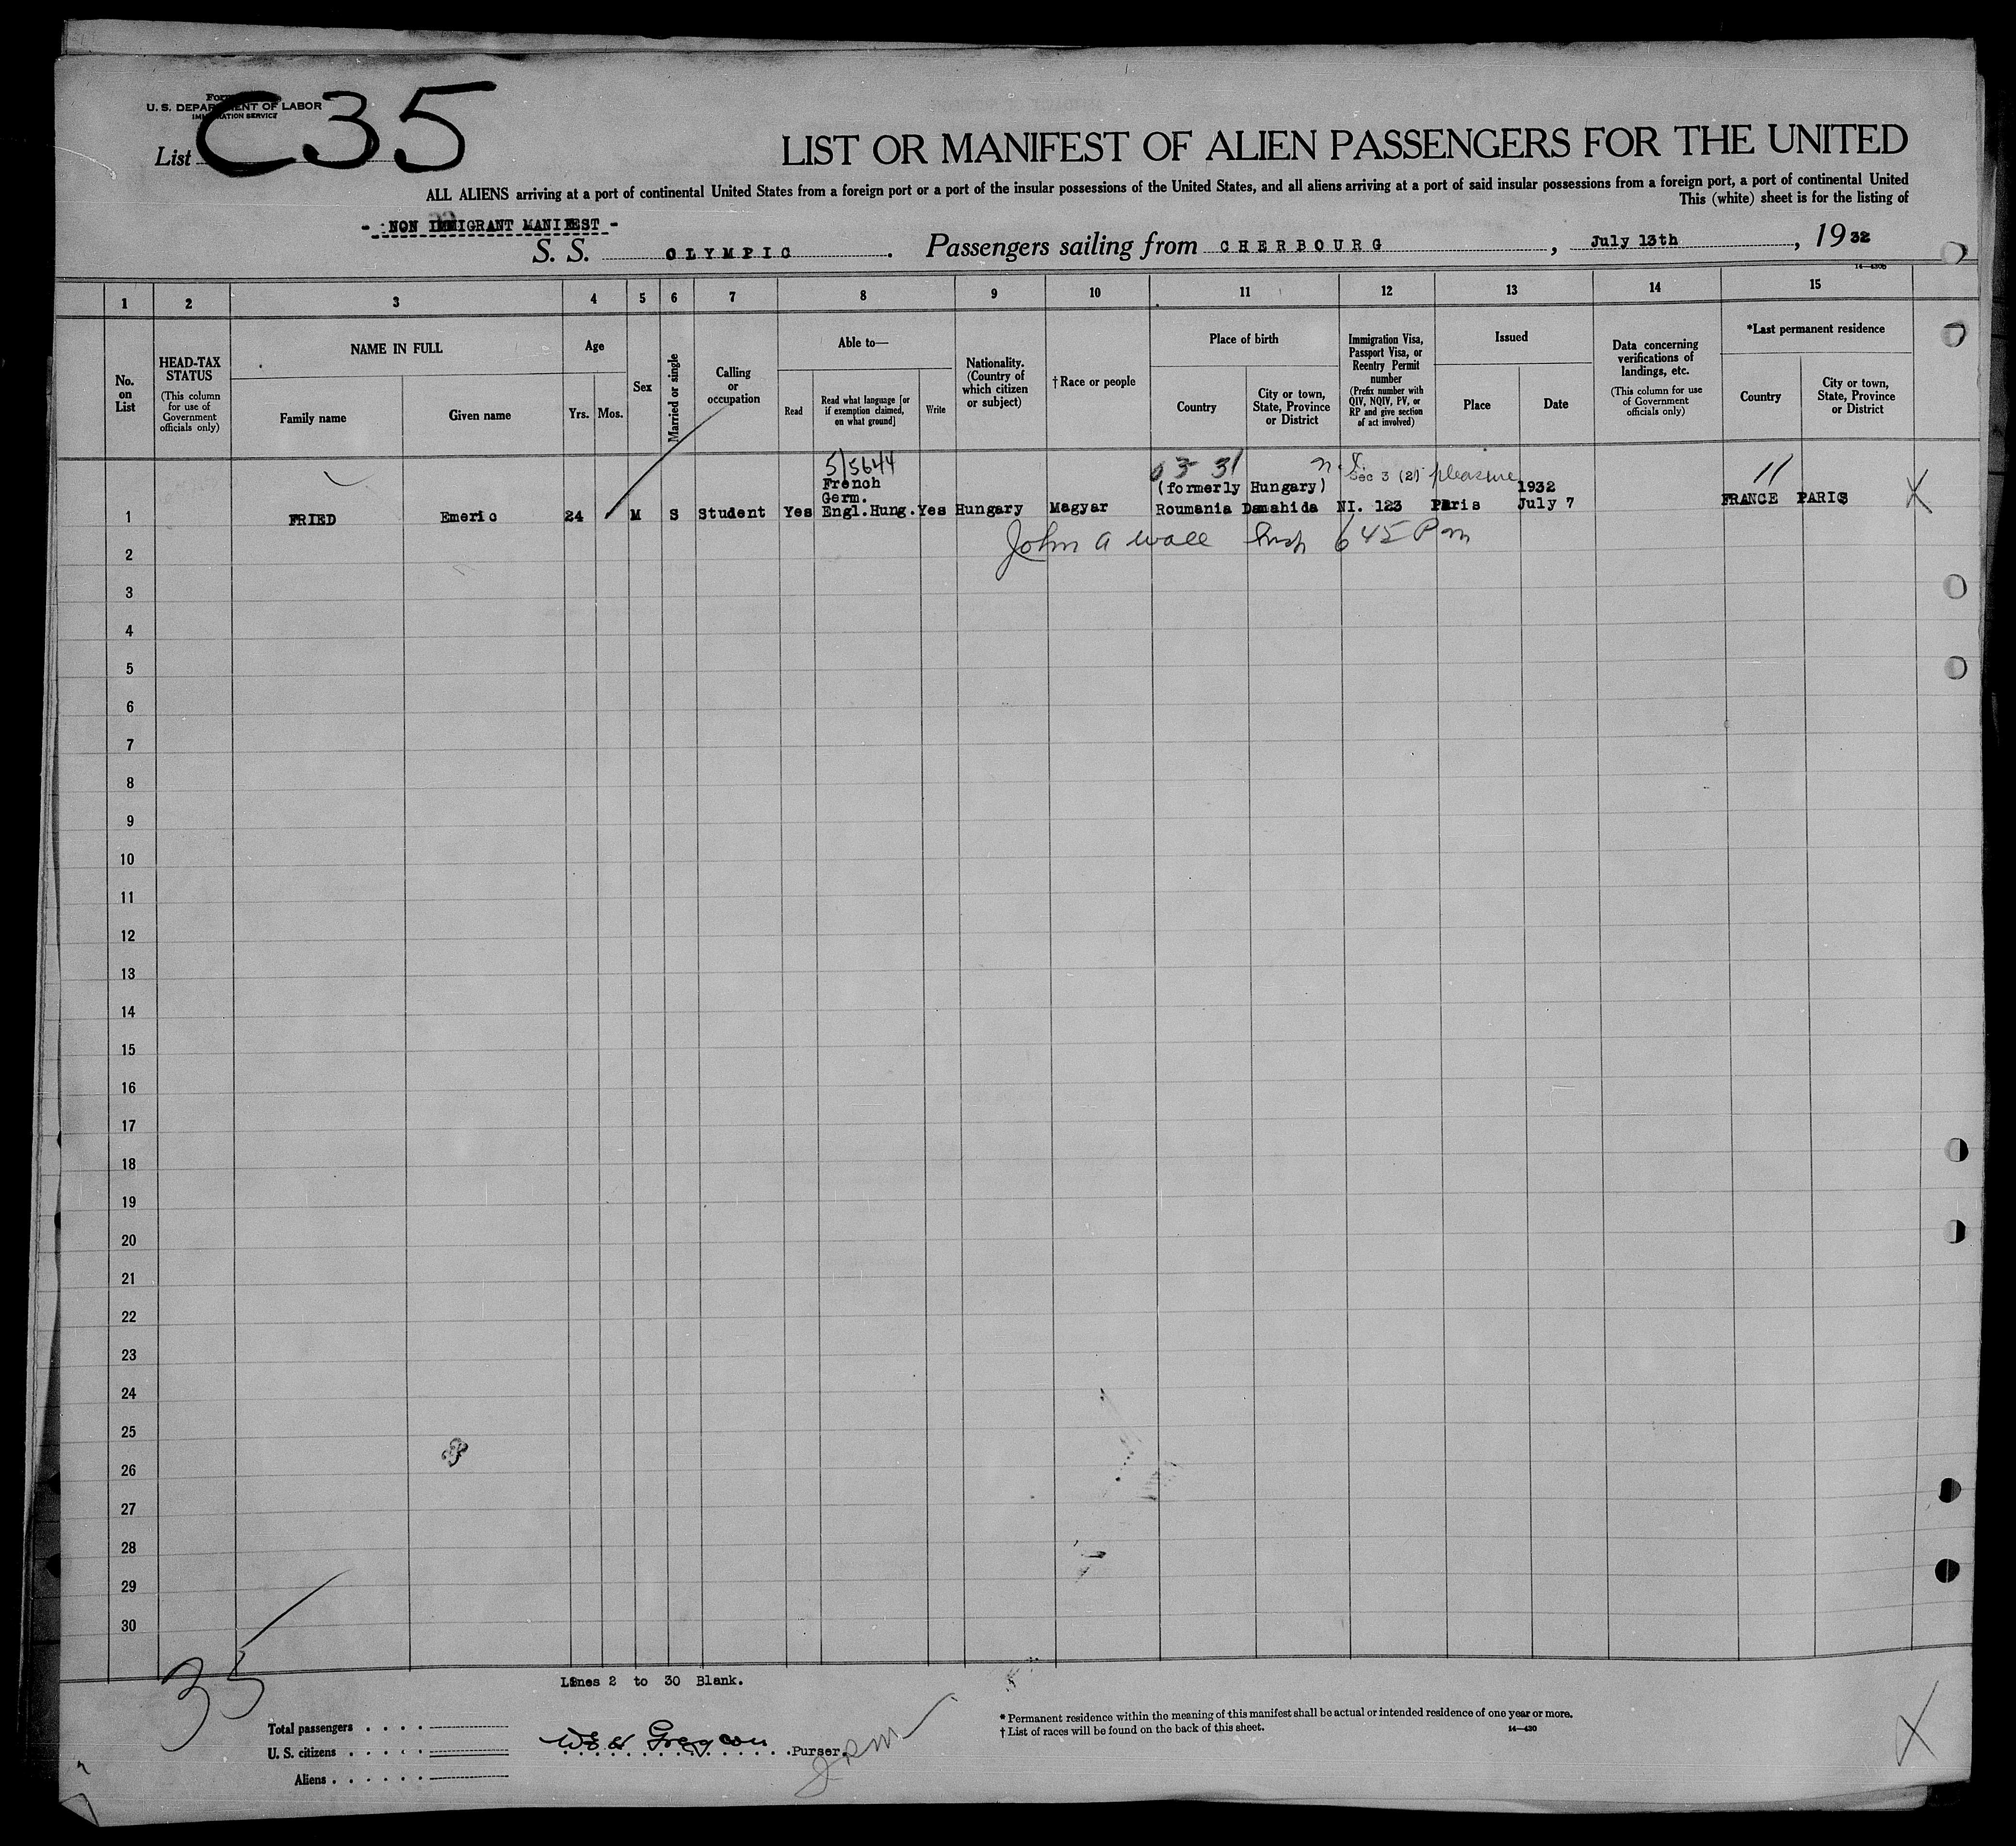 C35
Form
U. S. DEPARTMENT OF LABOR
IMMIGRATION SERVICE
List
LIST OR MANIFEST OF ALIEN PASSENGERS FOR THE UNITED
ALL ALIENS arriving at a port of continental United States from a foreign port or a port of the insular possessions of the United States, and all aliens arriving at a port of said insular possessions from a foreign port, a port of continental United
This (white) sheet is for the listing of
- NON IMMIGRANT MANIFEST -
S. S. OLYMPIC. Passengers sailing from CHERBOURG, July 13th, 1932
14—430b
1 2 3 4 5 6 7 8 9 10 11 12 13 14 15
No. on List
HEAD-TAX STATUS
(This column for use of Government officials only)
NAME IN FULL
Family name
Given name
Age
Yrs. Mos.
Sex
Married or single
Calling or occupation
Able to—
Read
Read what language [or if exemption claimed, on what ground]
Write
Nationality. (Country of which citizen or subject)
†Race or people
Place of birth
Country
City or town, State, Province or District
Immigration Visa, Passport Visa, or Reentry Permit number
(Prefix number with QIV, NQIV, PV, or RP and give section of act involved)
Issued
Place
Date
Data concerning verifications of landings, etc.
(This column for use of Government officials only)
*Last permanent residence
Country
City or town, State, Province or District
5/5644
03 31
Sec 3 (2) pleasure
11
French
Germ.
(formerly Hungary)
1932
1 FRIED Emeric 24 M S Student Yes Engl.Hung. Yes Hungary Magyar Roumania Damahida NI. 123 Paris July 7 FRANCE PARIS X
John A Wall Insp 645 Pm
2
3
4
5
6
7
8
9
10
11
12
13
14
15
16
17
18
19
20
21
22
23
24
25
26
27
28
29
30
35
Lines 2 to 30 Blank.
Total passengers
U. S. citizens
Aliens
Purser.
* Permanent residence within the meaning of this manifest shall be actual or intended residence of one year or more.
† List of races will be found on the back of this sheet.
14—430
X